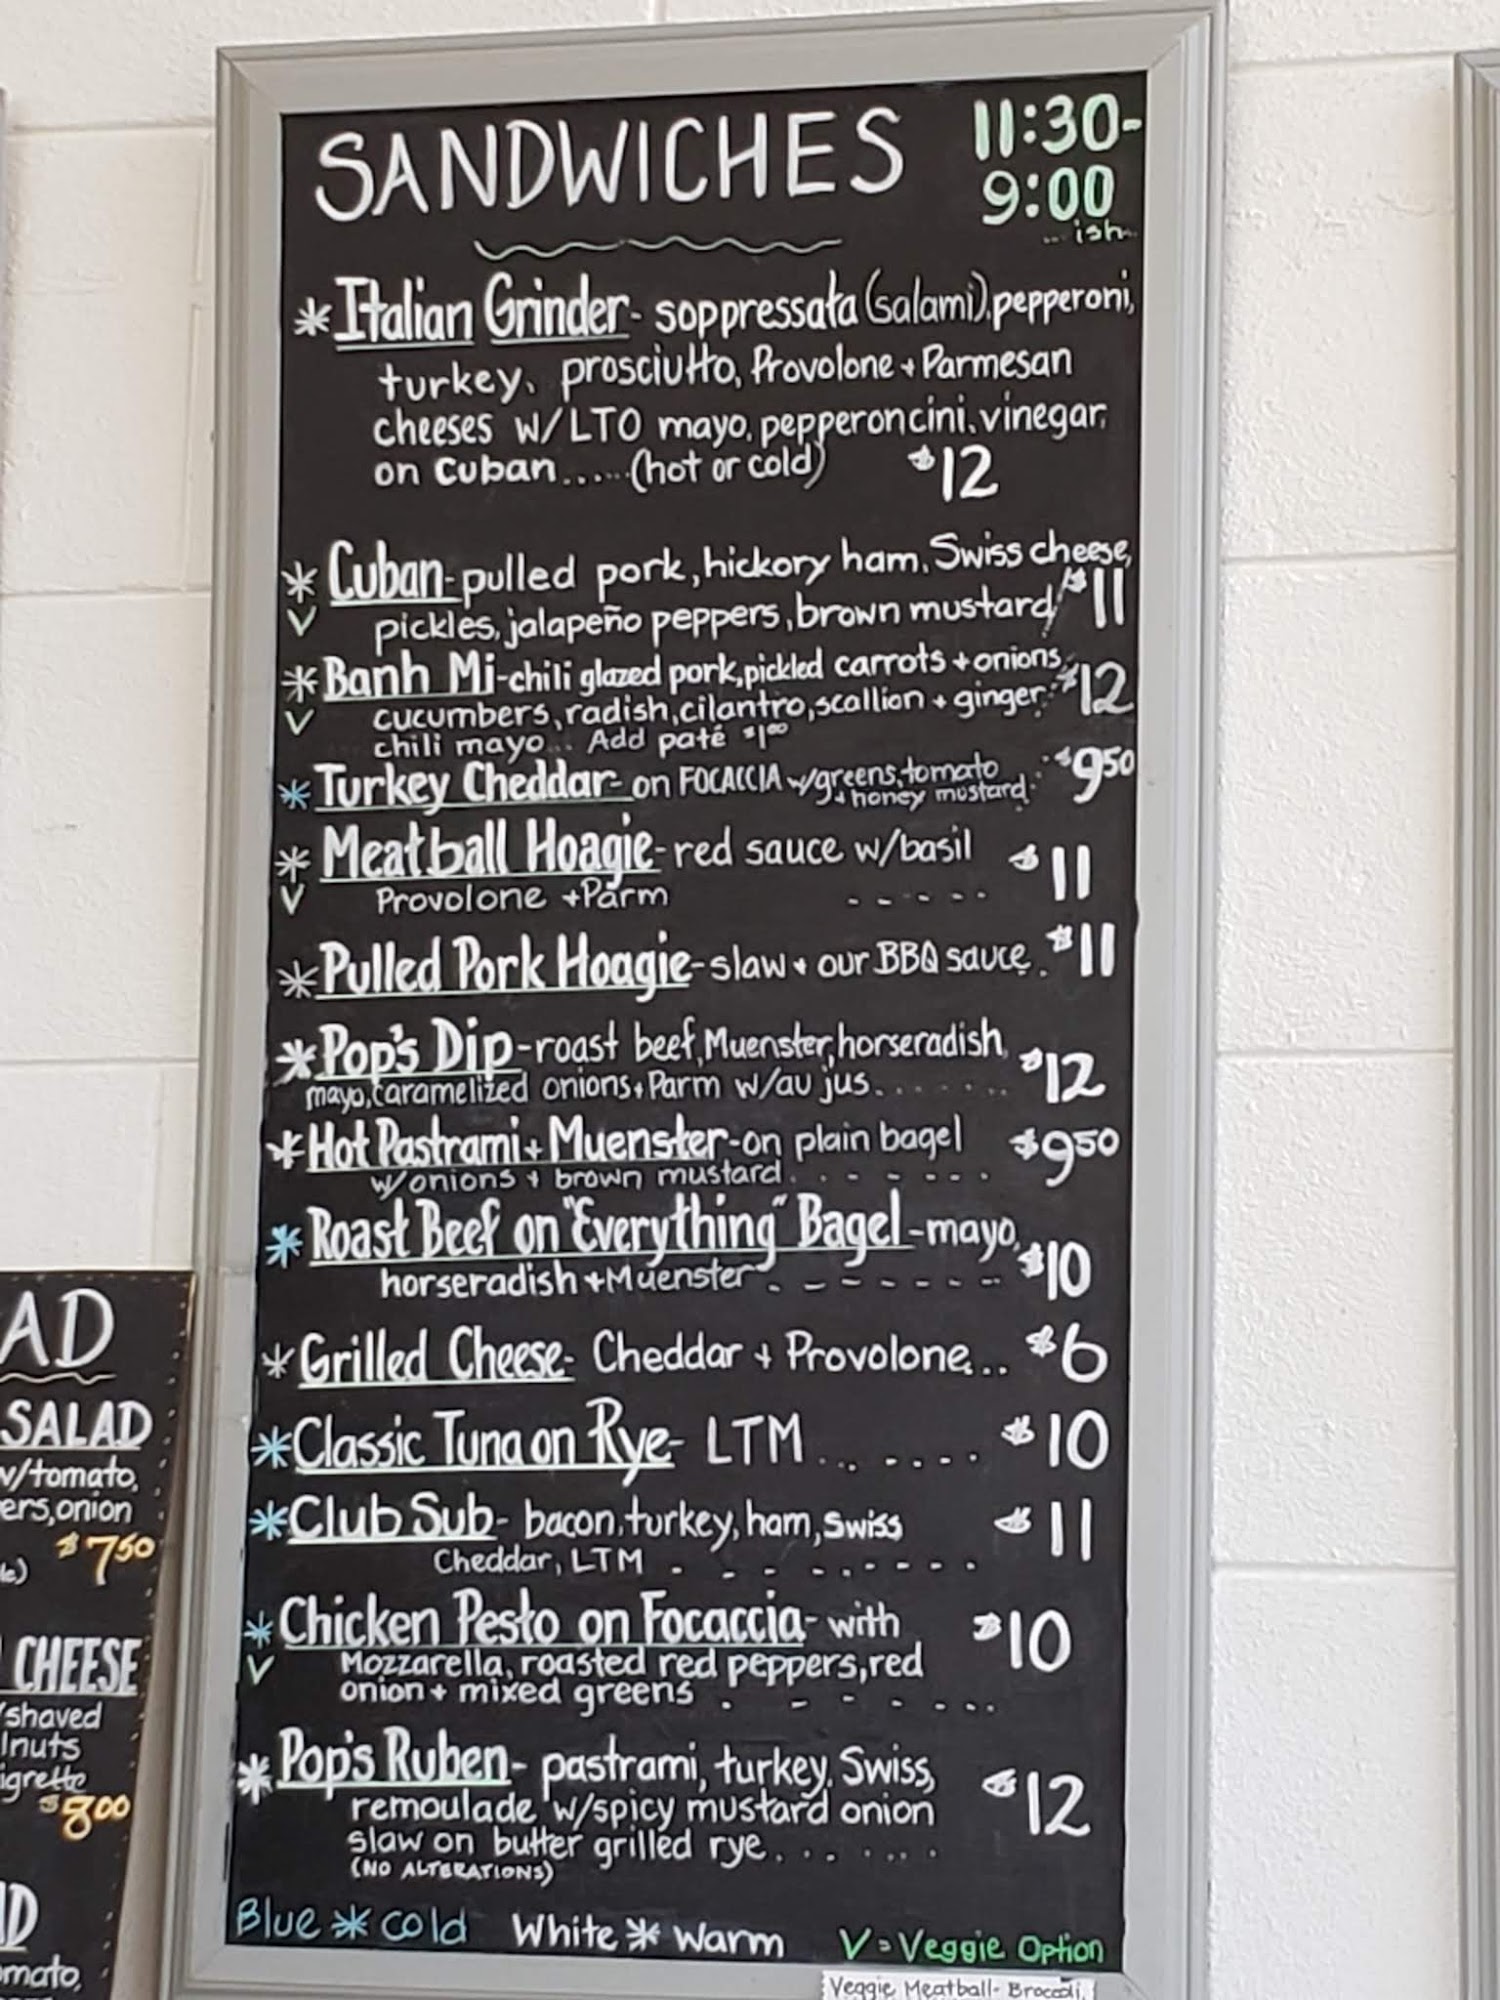 SANDWICHES
11:30-
9:00
... ish...
* Italian Grinder - soppressata (salami), pepperoni,
turkey, prosciutto, Provolone + Parmesan
cheeses w/LTO mayo, pepperoncini, vinegar,
on Cuban ...... (hot or cold) $12
* Cuban - pulled pork, hickory ham, Swiss cheese,
V pickles, jalapeño peppers, brown mustard $11
* Banh Mi - chili glazed pork, pickled carrots + onions,
V cucumbers, radish, cilantro, scallion + ginger $12
chili mayo... Add paté $1.00
* Turkey Cheddar - on FOCACCIA w/greens, tomato $9.50
+ honey mustard
* Meatball Hoagie - red sauce w/basil $11
V Provolone + Parm - - - - -
* Pulled Pork Hoagie - slaw + our BBQ sauce. $11
* Pop's Dip - roast beef, Muenster, horseradish,
mayo, caramelized onions, Parm w/au jus....... $12
* Hot Pastrami + Muenster - on plain bagel $9.50
w/onions + brown mustard. - - - - -
* Roast Beef on "Everything" Bagel - mayo,
horseradish + Muenster - - - - - - - $10
* Grilled Cheese - Cheddar + Provolone... $6
* Classic Tuna on Rye - LTM ....... $10
* Club Sub - bacon, turkey, ham, Swiss $11
Cheddar, LTM - - - - - - -
* Chicken Pesto on Focaccia - with $10
V Mozzarella, roasted red peppers, red
onion + mixed greens . - - - ...
* Pop's Ruben - pastrami, turkey, Swiss,
remoulade w/spicy mustard onion $12
slaw on butter grilled rye.......
(NO ALTERATIONS)
Blue * cold White * Warm V = Veggie Option
Veggie Meatball - Broccoli,
AD
SALAD
w/tomato,
ers, onion
$7.50
CHEESE
shaved
lnuts
igrette
$8.00
mato,